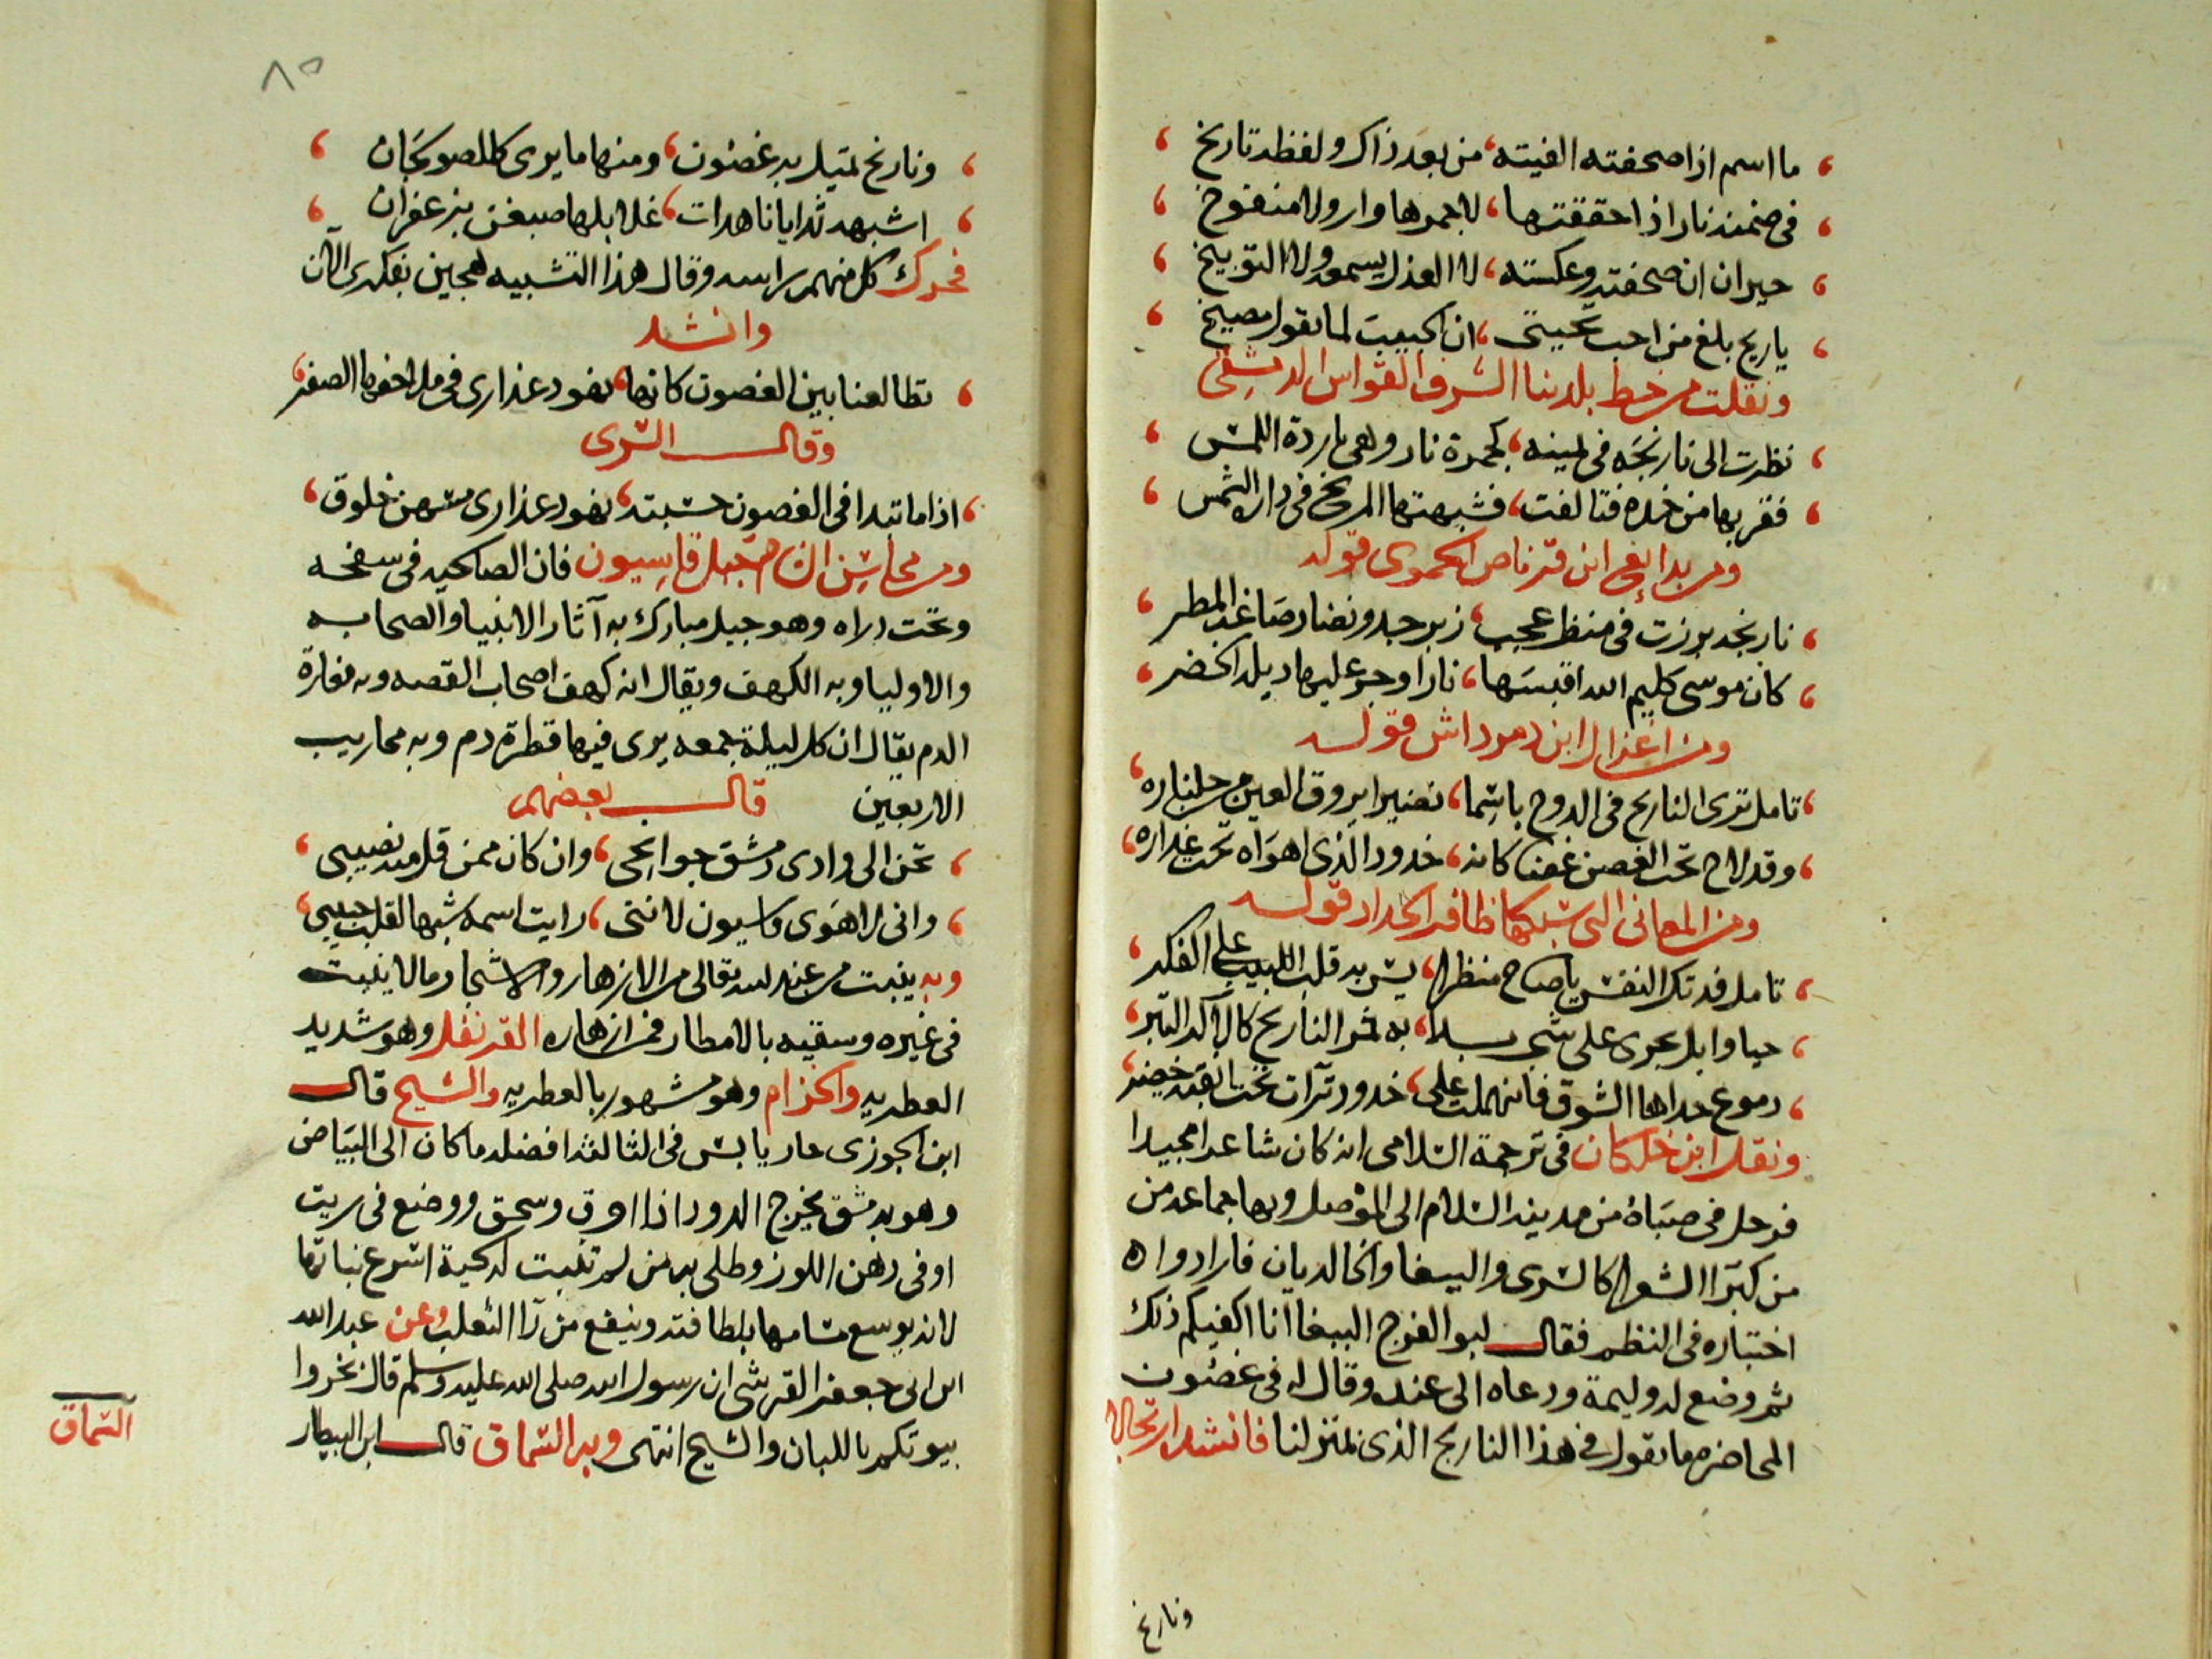 ما اسم اذا صحفته الفيته، من بعد ذاك ولفظه تاريخ
في ضمنه نار اذا حققتها، لا جمرها وار ولا منفوخ
حيران ان صحفته وعكسته، لا العذل يسمعه ولا التوبيخ
يا ريح بلغ من احب تحيتي، ان الحبيب لما يقول مصيخ
ونقلت من خط بلدينا الشرف القواس الدمشقي
نظرت الى نارنجه في يمينه، كجمرة نار وهي باردة اللمس
فقربها من خده فتالفت، فشبهتها المريخ في دارة الشمس
ومن بدائع ابن قرناص الحموي قوله
نارنجه برزت في منظر عجب، زبرجد ونضار صاغه المطر
كان موسى كليم الله اقبسها، نارا وجر عليها ذيله الخضر
ومن اغزال ابن دمرداش قوله
تامل ترى النارنج في الدوح باسما، نضيرا يروق العين من جلناره
وقد لاح تحت الغصن غضا كانه، خدود الذي اهواه تحت عذاره
ومن المعاني التي سبكها ظافر الحداد قوله
تامل فدتك النفس يا صاح منظرا، يسر به قلب اللبيب على الفكر
حيا وابل يجري على شجر بدا، به ثمر النارنج كالاكر التبر
دموع حداها الشوق فانهملت على، خدود تراءت تحت انقبة خضر
ونقل ابن خلكان في ترجمة السلامي انه كان شاعرا مجيدا
فرحل في صباه من مدينة السلام الى الموصل وبها جماعه من
من كبرا الشعرا كالسري والببغا والخالديان فارادوا
اختباره في النظم فقال ابو الفرج الببغا انا اكفيكم ذلك
ثم وضع له وليمة ودعاه الى عنده وقال له في غضون
المحاضره ما تقول في هذا النارنج الذي بمنزلنا فانشد ارتجالا
ونارنج
٨٥
ونارنج تميل به غصون، ومنها ما يرى كالصولجان
اشبهه ثدايا ناهدات، غلايلها صبغن بزعفران
فحرك كل منهم راسه وقال هذا التشبيه هجين بفكري الان
وانشد
تطالعنا بين الغصون كانها، نهود عذارى في ملاحفها الصفر
وقال السري
اذا ما تبدا في الغصون حسبته، نهود عذارى مسهن خلوق
ومن محاسن الشام جبل قاسيون فان الصالحيه في سفحه
وتحت ذراه وهو جبل مبارك به آثار الانبيا والصحابه
والاوليا وبه الكهف ويقال انه كهف اصحاب القصه وبه مغارة
الدم يقال ان كل ليلة جمعه يرى فيها قطرة دم وبه محاريب
الاربعين قال بعضهم
تحن الى وادي دمشق جوانحي، وان كان ممن قل منه نصيبي
واني لاهوى قاسيون لانني، رايت اسمه شبها لقلب حبيبي
وبه ينبت من عند الله تعالى من الازهار والاشجار ما لا ينبت
في غيره وسقيه بالامطار فمن ازهاره القرنفل وهو شديد
العطريه والخزام وهو مشهور بالعطريه والشيح قال
ابن الجوزي حار يابس في الثالثه افضله ما كان الى البياض
وهو بدمشق يخرج الدود اذا احرق وسحق ووضع في زيت
او في دهن اللوز وطلي به من لم تنبت له لحية اسرع نباتها
لانه يوسع مسامها بلطافته وينفع من دا الثعلب وعن عبد الله
ابن ابي جعفر القرشي ان رسول الله صلى الله عليه وسلم قال بخروا
بيوتكم باللبان والشيح انتهى وبه السماق قال ابن البيطار
السماق